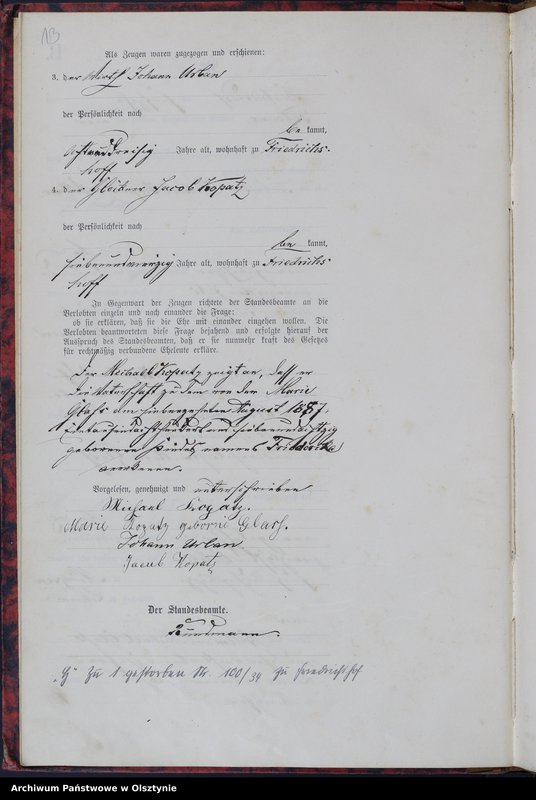 13
Als Zeugen waren zugezogen und erschienen:
3. der Wirth Johann Urban
der Persönlichkeit nach
be kannt,
achtunddreißig Jahre alt, wohnhaft zu Friedrichs-
hoff
4. der Jacob Kopatz
der Persönlichkeit nach
be kannt,
siebenundvierzig Jahre alt, wohnhaft zu Friedrichs-
hoff
In Gegenwart der Zeugen richtete der Standesbeamte an die
Verlobten einzeln und nach einander die Frage:
ob sie erklären, daß sie die Ehe mit einander eingehen wollen. Die
Verlobten beantworteten diese Frage bejahend und erfolgte hierauf der
Ausspruch des Standesbeamten, daß er sie nunmehr kraft des Gesetzes
für rechtmäßig verbundene Eheleute erkläre.
Der Michael Kopatz zeigt an, dass er
die Vaterschaft zu dem von der Marie
Glahs am siebenzehnten August 1887,
eintausendachthundert und siebenundachtzig
geborenen Kindes namens Friederike
anerkenne.
Vorgelesen, genehmigt und unterschrieben
Michael Kopatz.
Marie Kopatz geborne Glass.
Johann Urban
Jacob Kopatz
Der Standesbeamte.
"H" Zu 1 gestorben Nr. 100/34 zu Friedrichshof
Archiwum Państwowe w Olsztynie